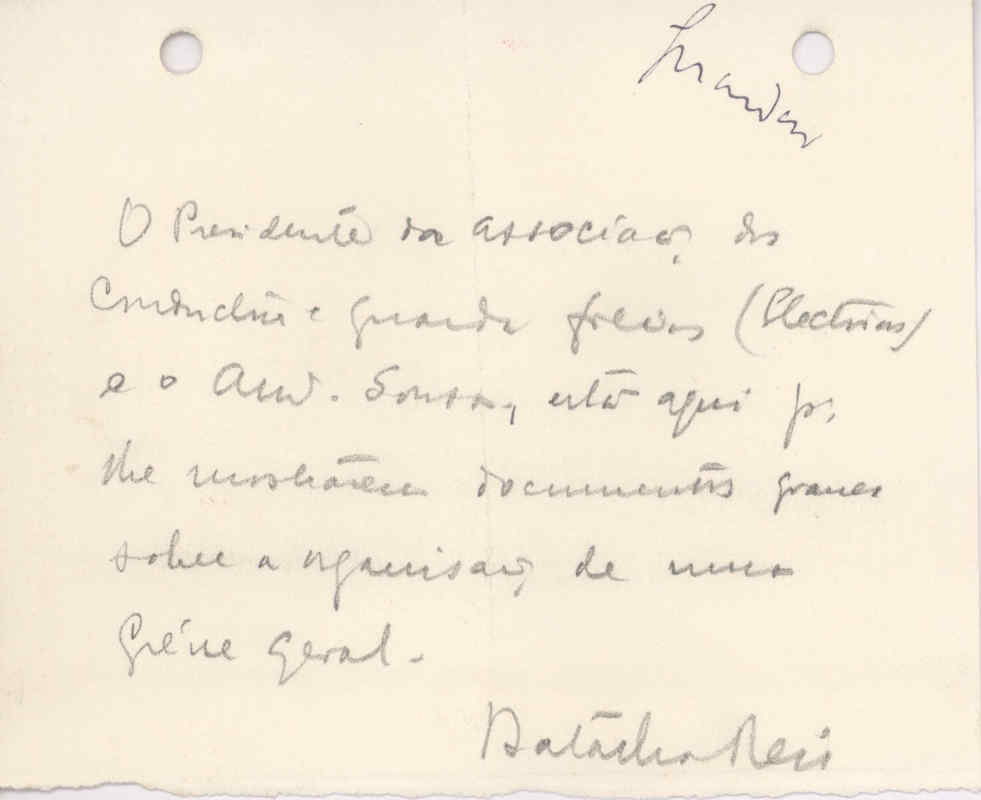 Guardar
O Presidente da associação dos
Conductores e Guarda freios (Electricos)
e o Ant. Sousa, está aqui p.
lhe mostrarem documentos graves
sobre a organisação de uma
Gréve geral.
Batalha Reis